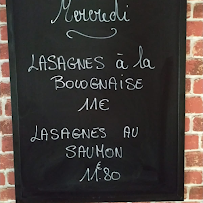 Mercredi
LASAGNES à la
BOLOGNAISE
11€
LASAGNES AU
SAUMON
11€80